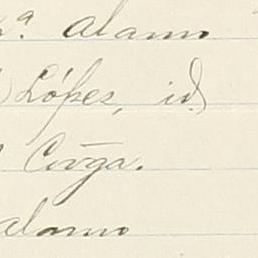 a. Alamo
López, id.
Civga.
Alamo